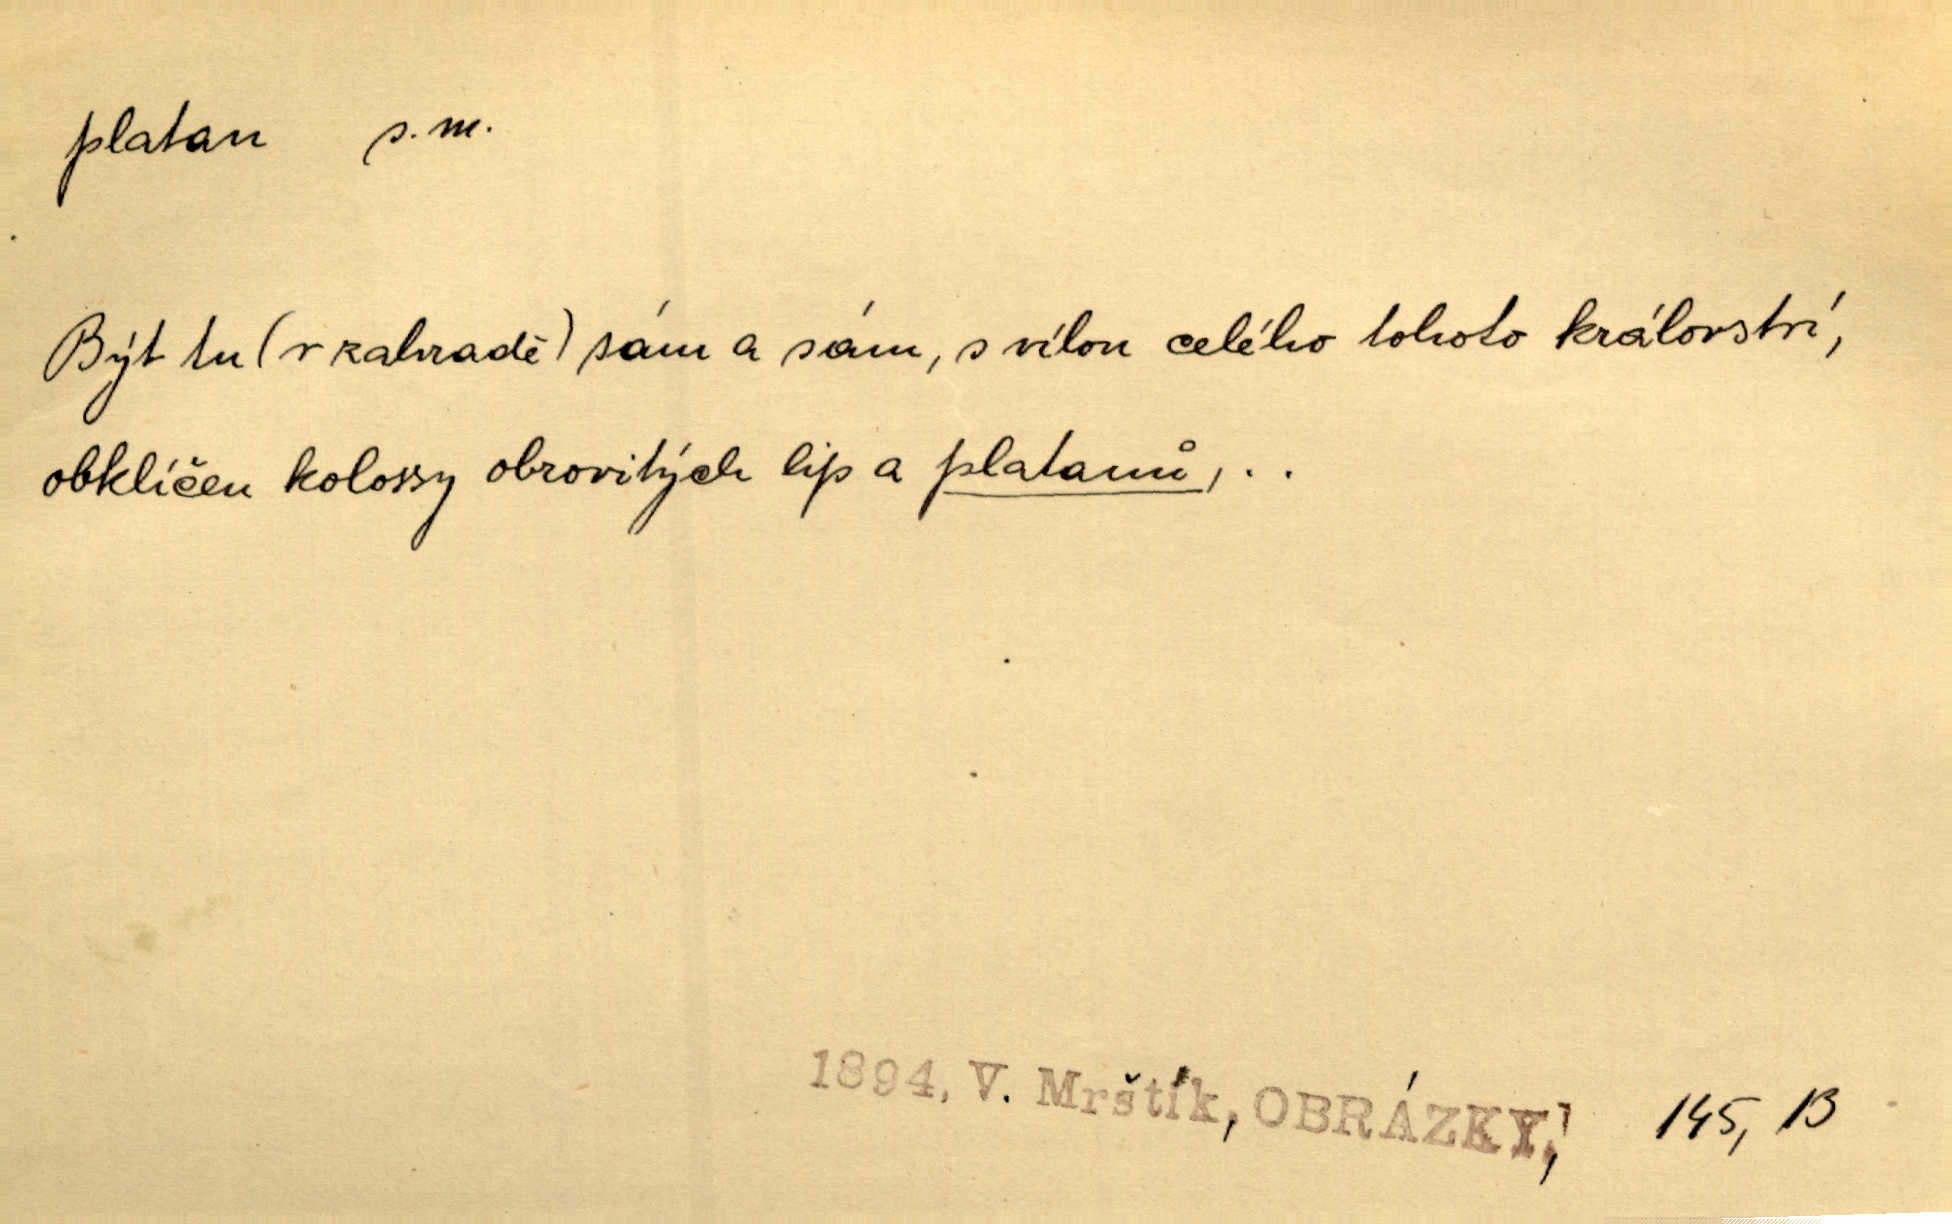 platan s. m.
Být tu (v zahradě) sám a sám, s vílou celého tohoto království,
obklíčen kolossy obrovitých lip a platanů, . .
1894, V. Mrštík, OBRÁZKY, 145, B